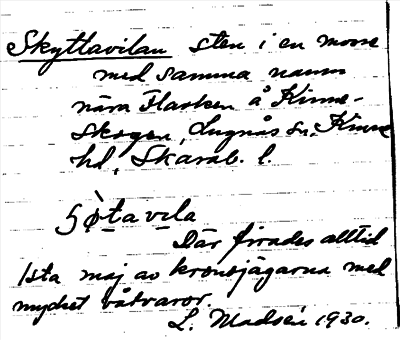 Skyttavilan sten i en mosse
med samma namn
nära Flasken å Kinne-
Skogen, Lugnås sn, Kinne
hd, Skarab. l.
Sötavila
Där firades alltid
1sta maj av kronojägarna med
mycket våtvaror.
L. Madsén 1930.